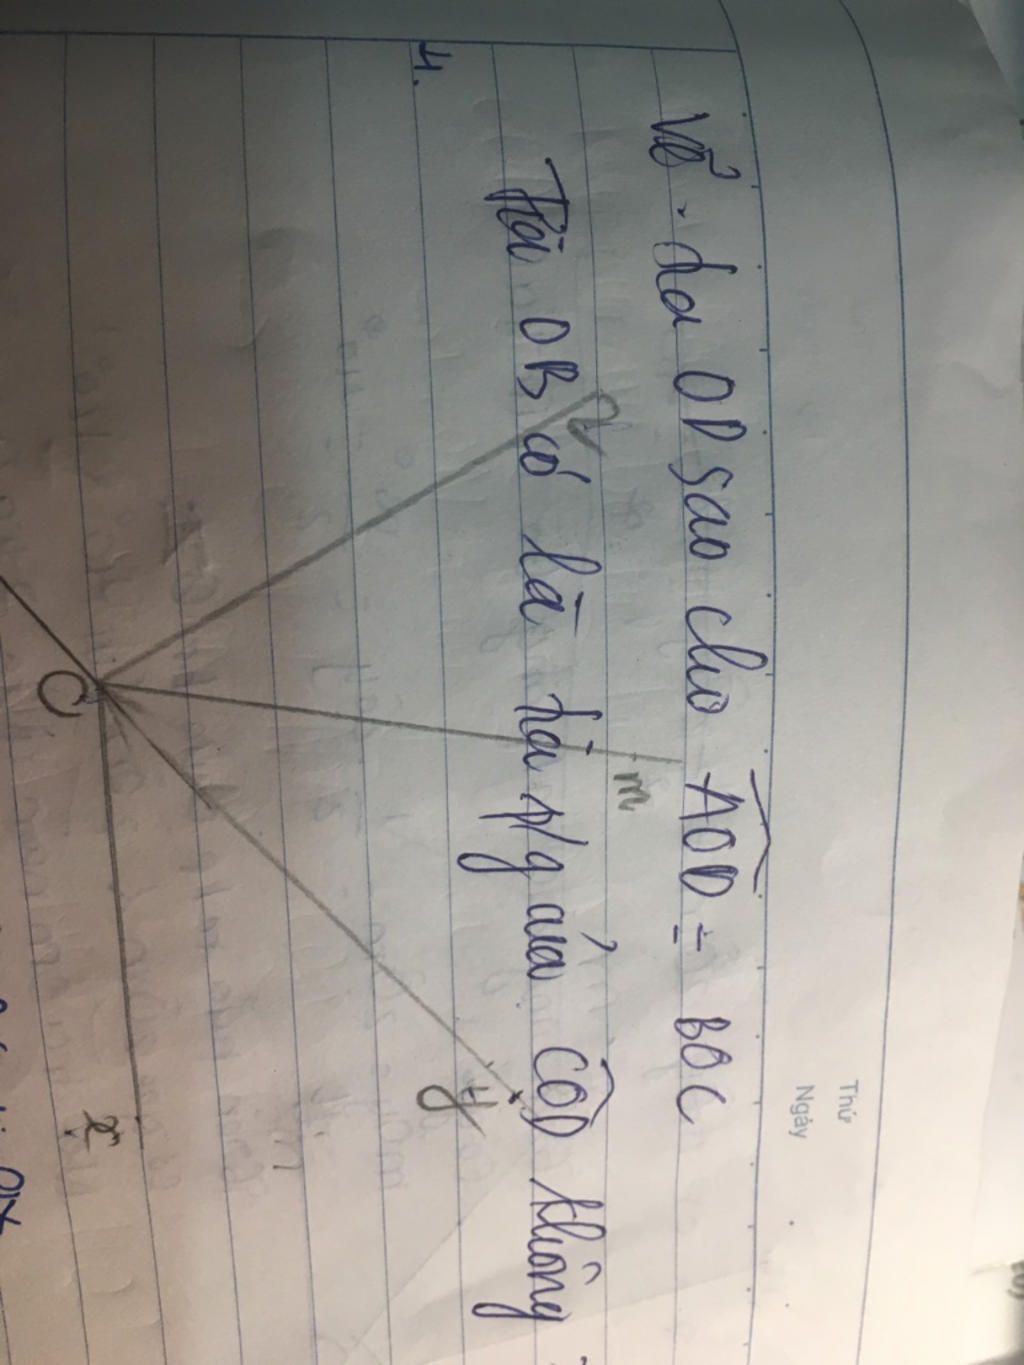 Thứ
Ngày
Vẽ tia OD sao cho AOD = BOC
Tia OB có là tia p/g của COD không
4.
z
m
y
O
x